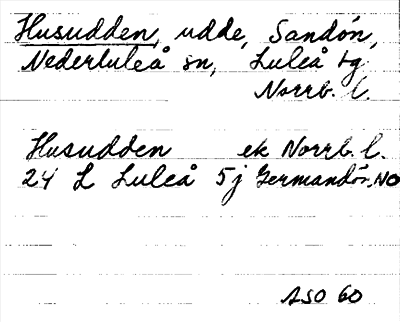 Husudden, udde, Sandön,
Nederluleå sn, Luleå tg
Norrb. l.
Husudden ek Norrb. l.
24 L Luleå 5j Germandön, NO
ASO 60